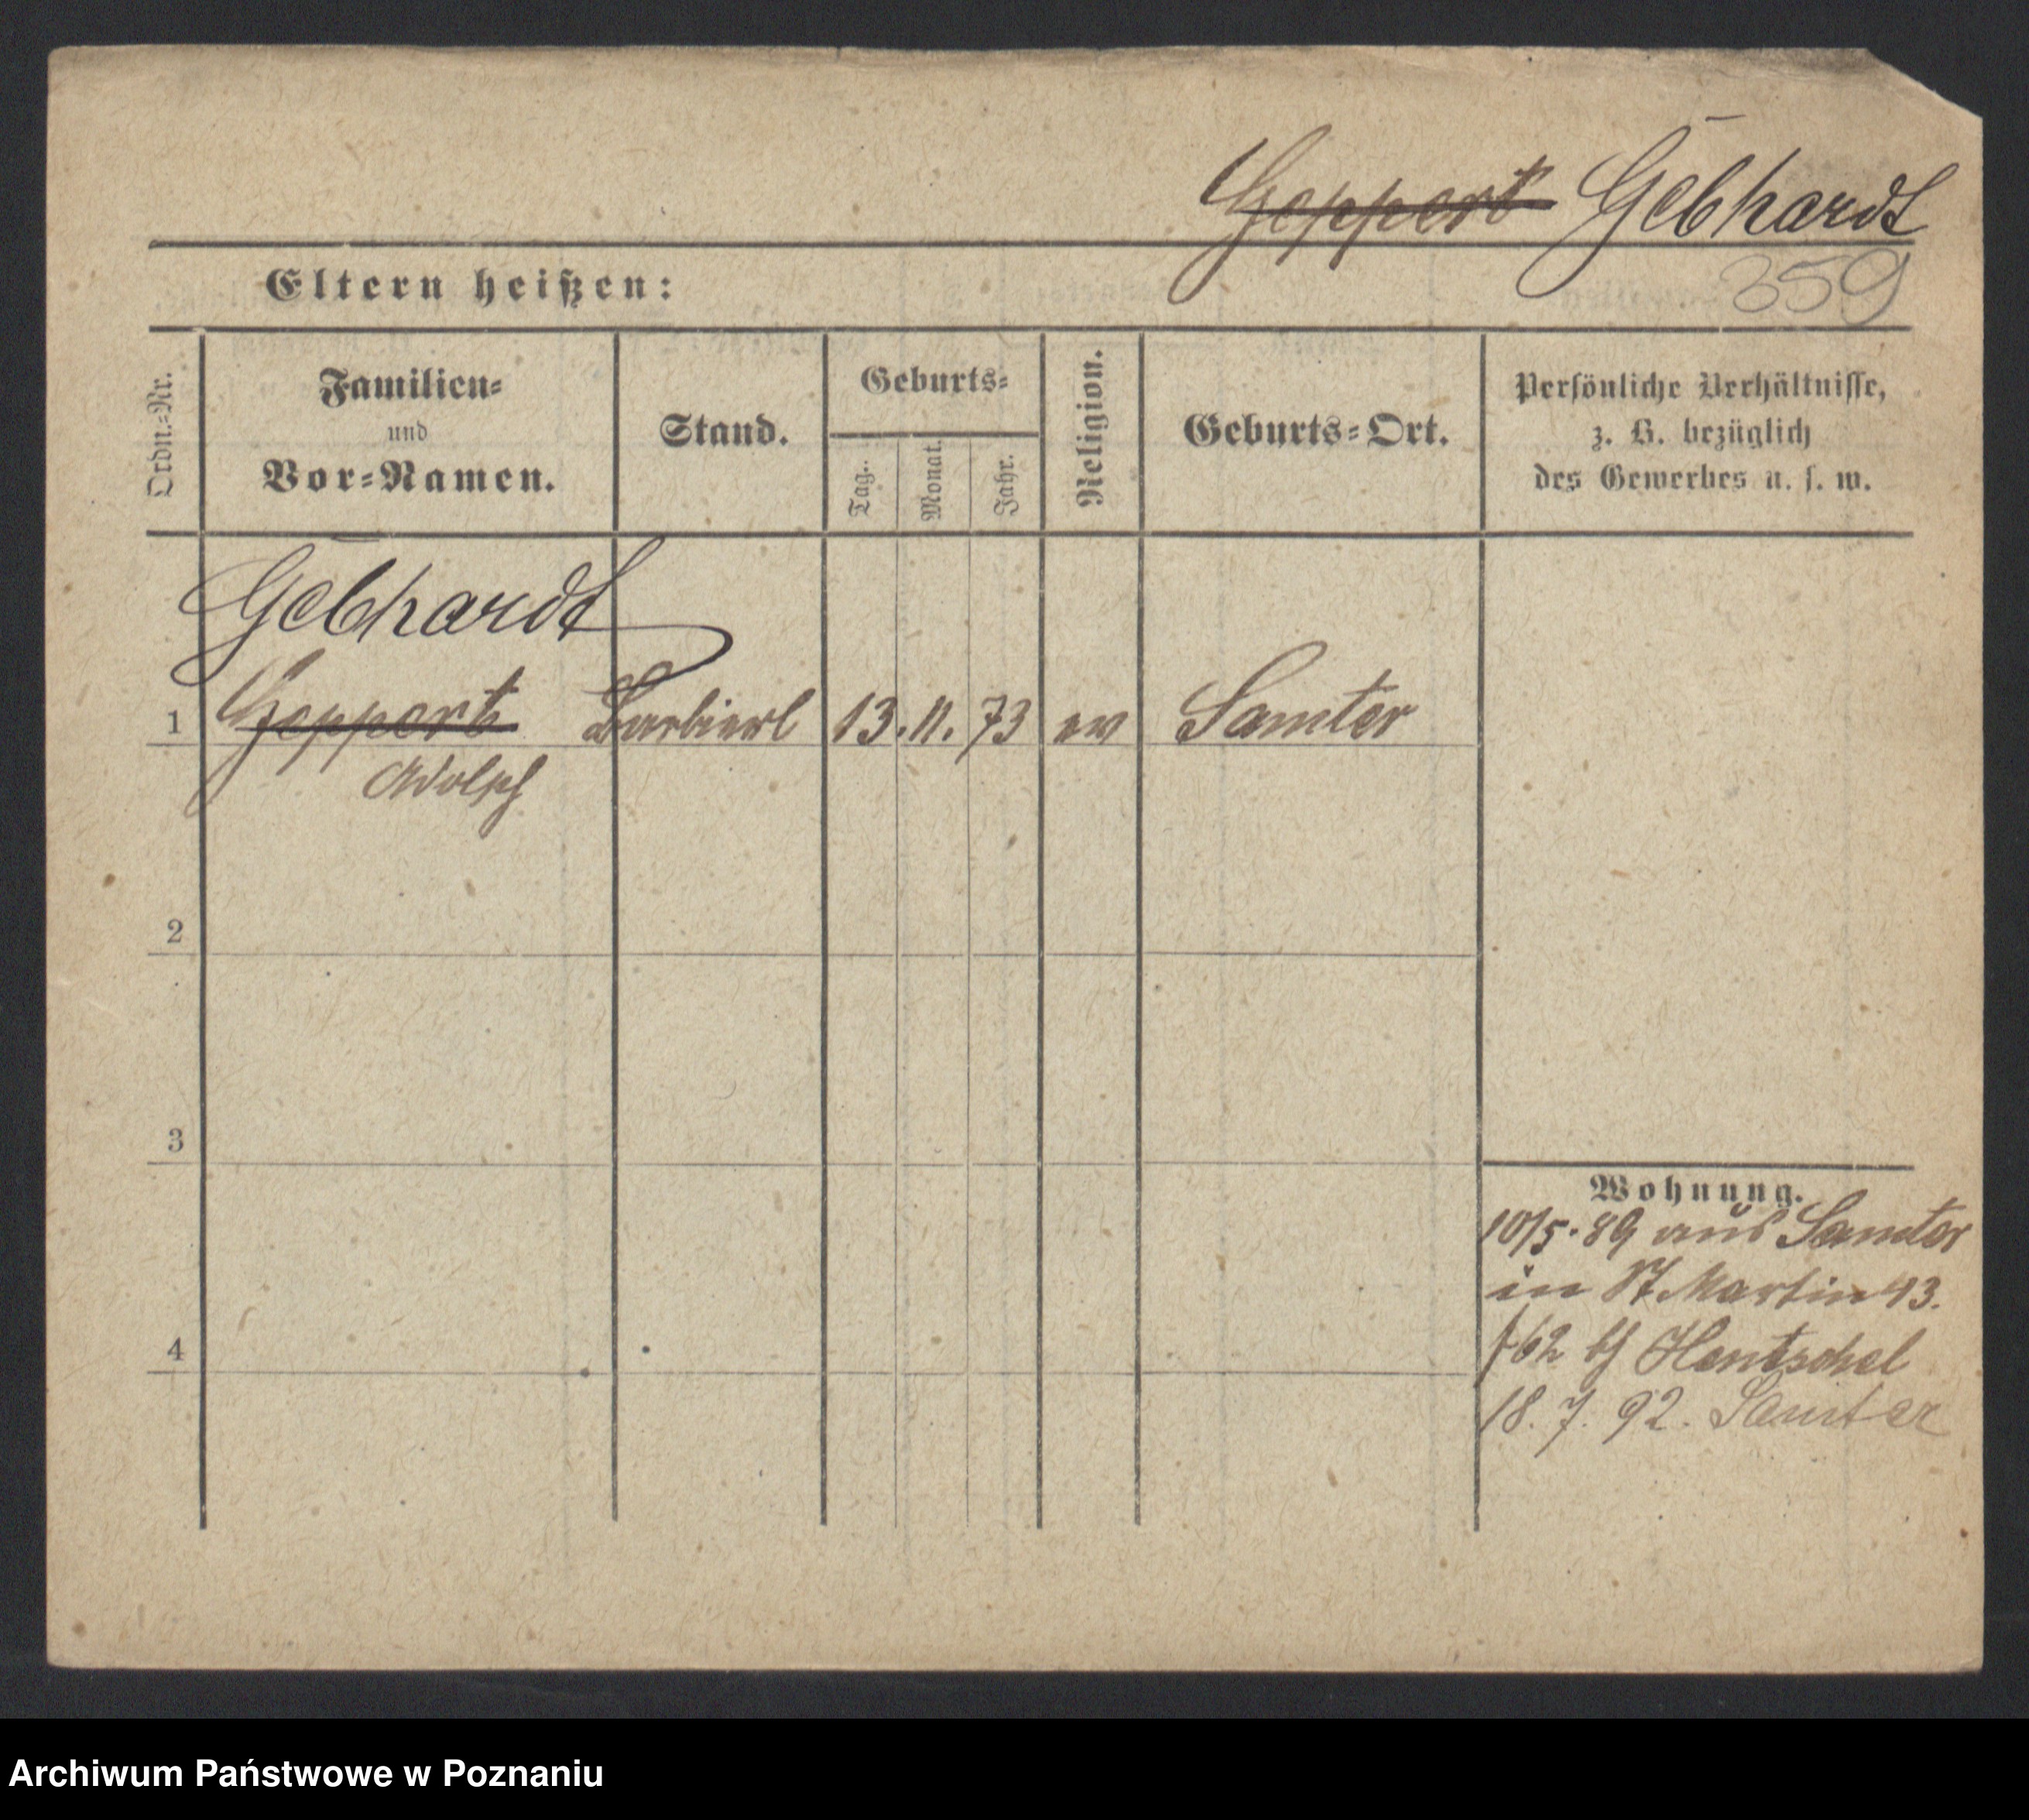 Geppert Gebhardt
Eltern heißen:
359
Ordn.=Nr.
Familien=
und
Vor=Namen.
Stand.
Geburts=
Tag.
Monat.
Jahr.
Religion.
Geburts=Ort.
Persönliche Verhältnisse,
z. B. bezüglich
des Gewerbes u. s. w.
Gebhardt
1 Geppert Barbierl 13. 11. 73 ev Samter
Adolph
2
3
4
Wohnung.
10/5. 89 aus Samter
in St Martin 43.
f 62 bh Hentschel
18. 7. 92. Samter
Archiwum Państwowe w Poznaniu